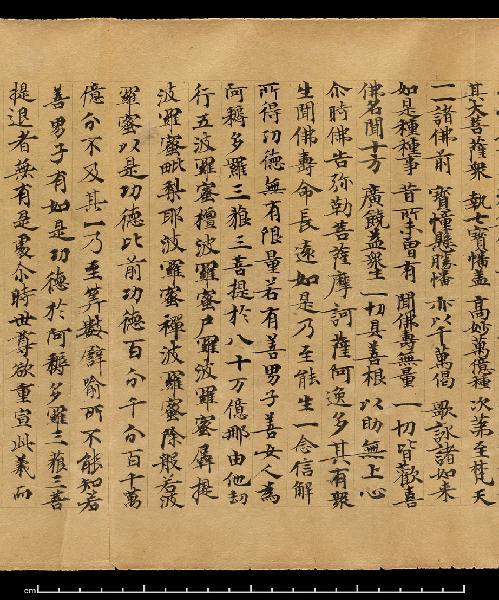 其大菩薩衆 執七寶幡蓋 高妙萬億種 次第至梵天
一一諸佛前 寶幢懸勝幡 亦以千萬偈 歌詠諸如来
如是種種事 昔所未曾有 聞佛壽無量 一切皆歡喜
佛名聞十方 廣饒益衆生 一切具善根 以助無上心
尒時佛告弥勒菩薩摩訶薩阿逸多其有衆
生聞佛壽命長遠如是乃至能生一念信解
所得功德無有限量若有善男子善女人為
阿耨多羅三藐三菩提於八十万億那由他劫
行五波羅蜜檀波羅蜜尸羅波羅蜜羼提
波羅蜜毗梨耶波羅蜜禪波羅蜜除般若波
羅蜜以是功德比前功德百分千分百千萬
億分不及其一乃至筭數譬喻所不能知若
善男子有如是功德於阿耨多羅三藐三菩
提退者無有是處尒時世尊欲重宣此義而
cm